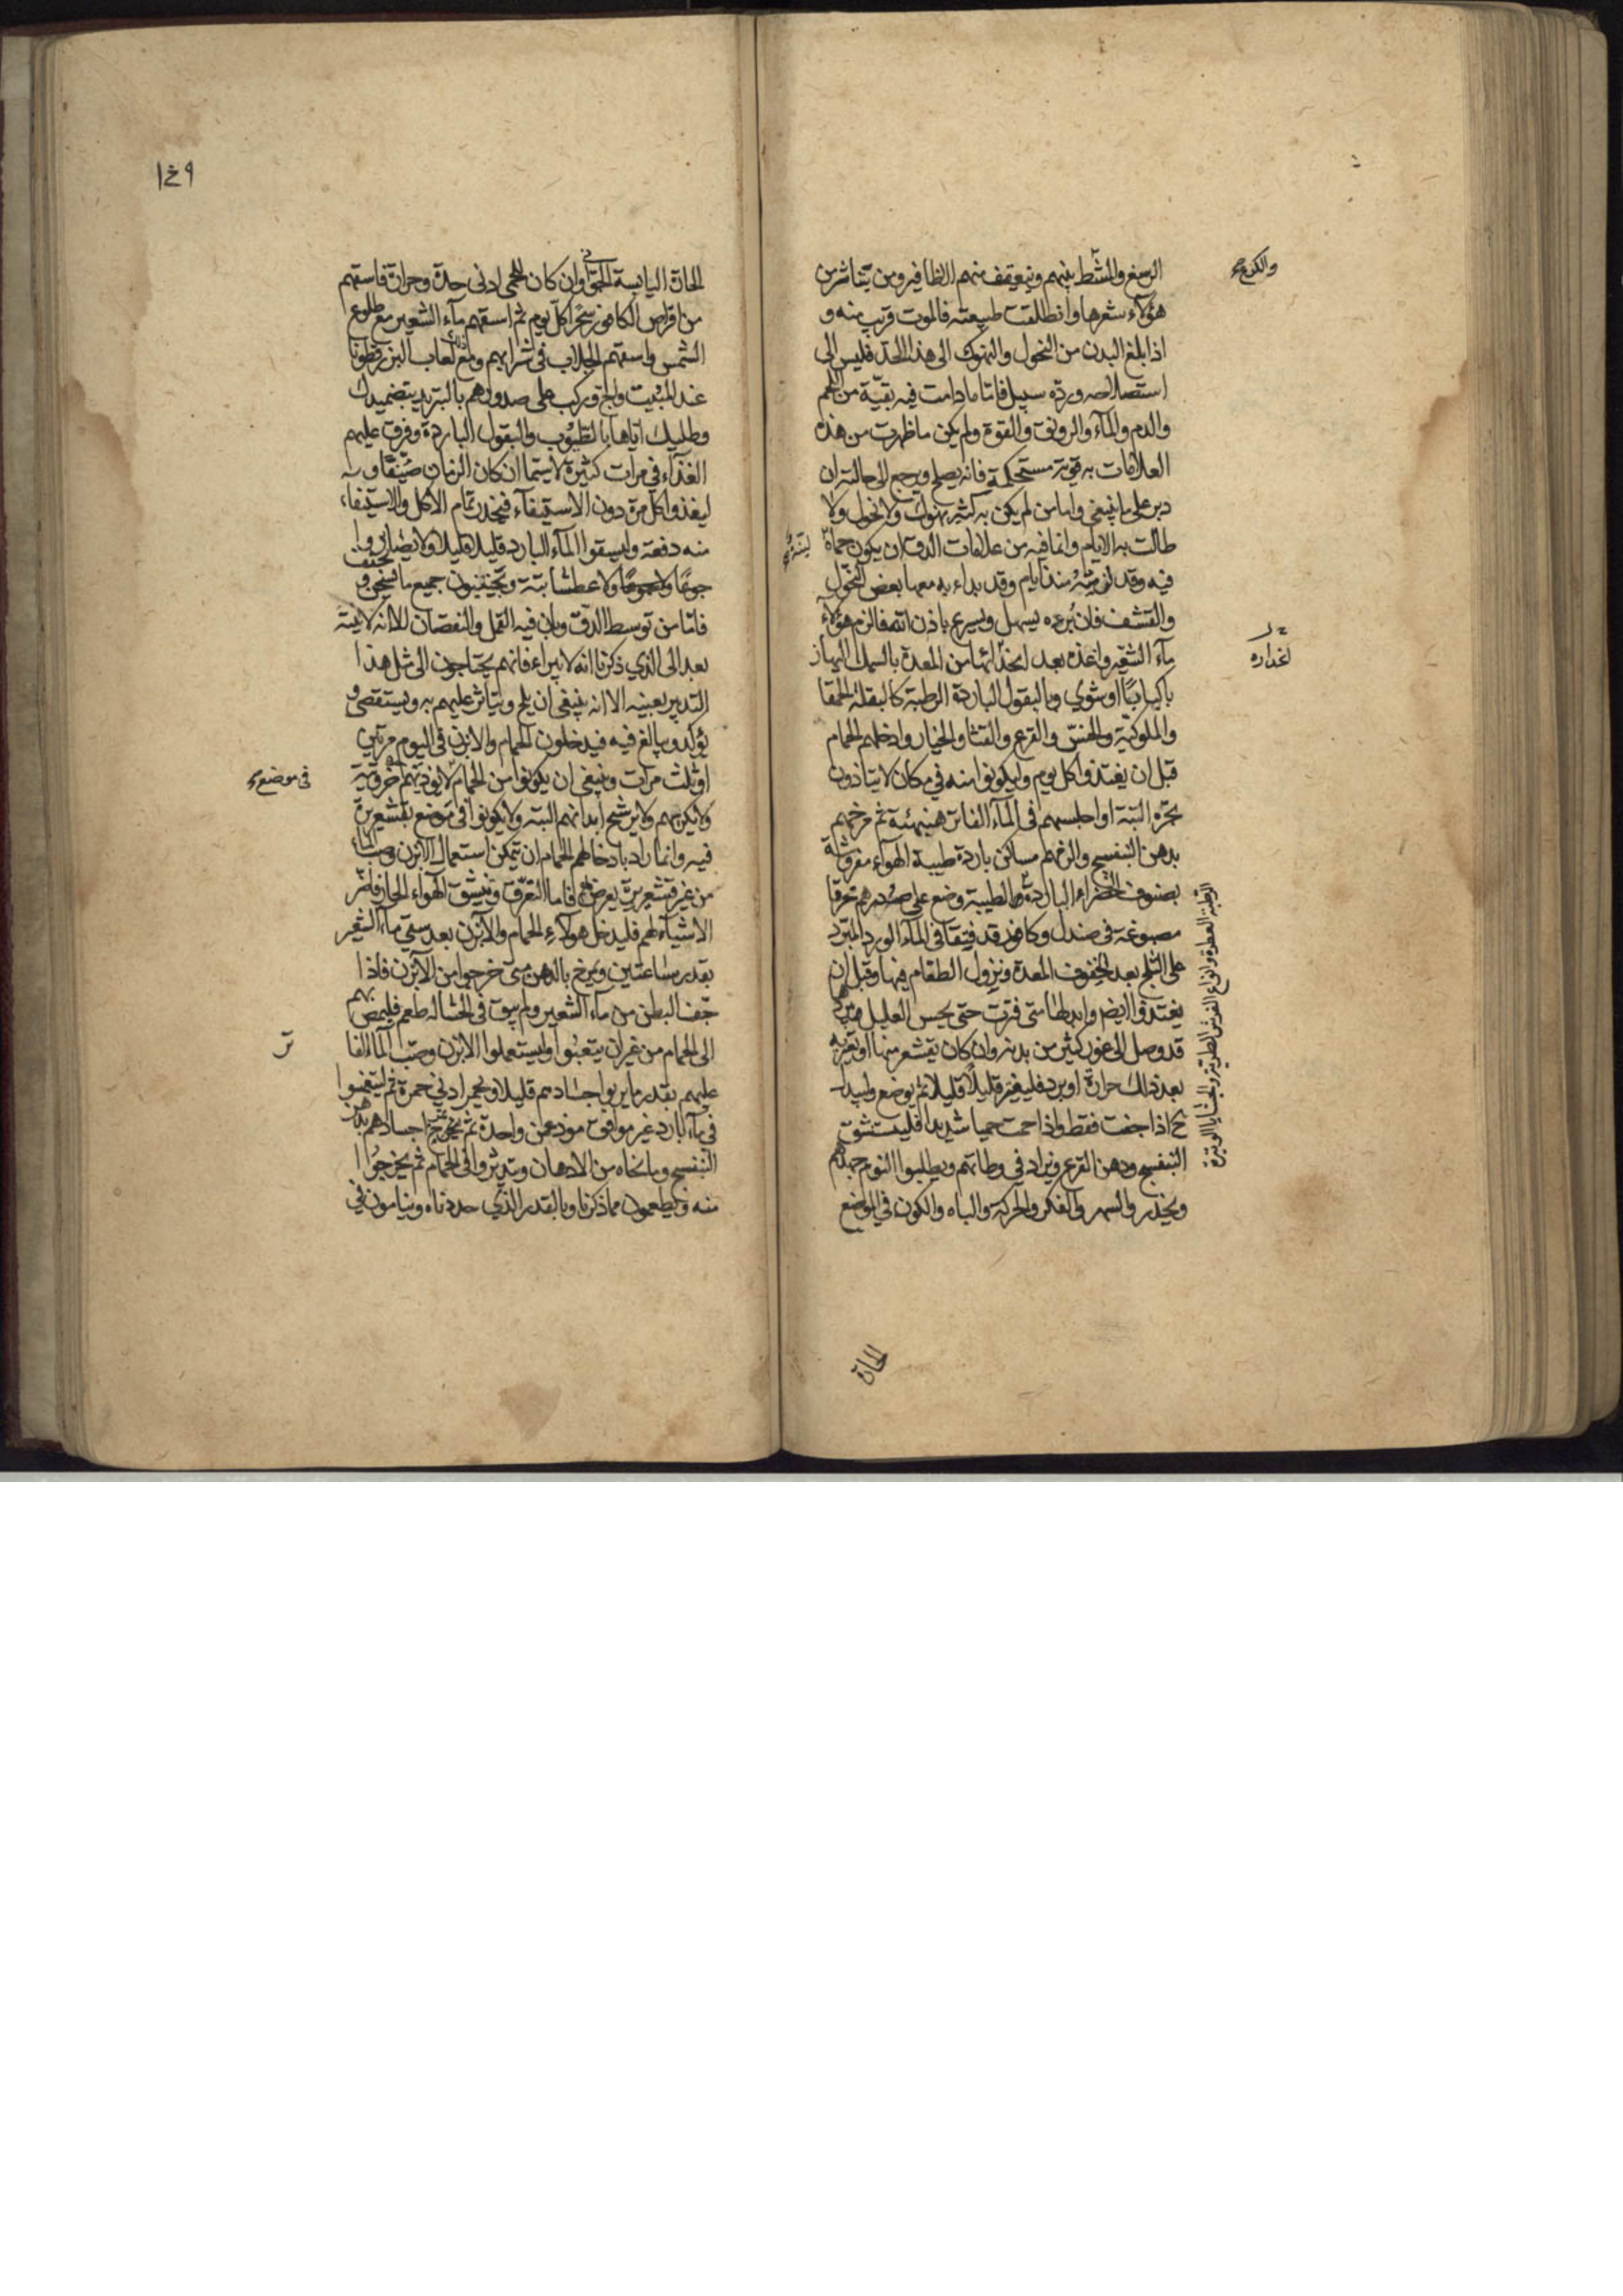 والكوع صح
الرسغ والمشط منهم وتتعقف منهم الاظافير ومن يتناثر من
هؤلاء شعرها وانطلقت طبيعته فالموت قريب منه و
اذا بلغ البدن من النحول والنهوك الى هذا الحد فليس الى
استصلاحه ورده سبيل فاما ما دامت فيه بقية من اللحم
والدم والماء والرونق والقوة ولم يكن ما ظهرت من هذه
العلامات به قوية مستحكمة فانه يصلح ويرجع الى حالته ان
دبر على ما ينبغي واما من لم يكن به كثير نهوك ولا نحول ولا
طالت به الايام وانما فيه من علامات الدق ان يكون حماه
فيه وقد لزمته منذ ايام وقد بداء به معها بعض النحول
والقشف فان برءه يسهل ويسرع باذن الله فالزم هؤلاء
ماء الشعير واغذه بعد انحدارها من المعدة بالسمك
انحداره
باكبابا او شوي وبالبقول الباردة الرطبة كالبقلة الحمقا
والملوكية والخس والقرع والقثا والخيار وادخلهم الحمام
قبل ان يغتذوا كل يوم وليكونوا منه في مكان لا يتأذون
بحره البتة او اجلسهم في الماء الفاتر هنيهة ثم مرخهم
بدهن البنفسج والزمهم مساكن باردة طيبة الهواء مفروشة
بصنوف الخضراء الباردة الطيبة وضع على صدرهم خرقا
مصبوغة في صندل وكافور قد فتقا في الماء الورد المبرد
على الثلج بعد لخفوف المعدة ونزول الطعام منها وقبل ان
يغتذوا ايضا وابدلها متى فترت حتى يحس العليل
قد وصل الى غور كثير من بدنه وان كان يقشعر منها او تعتريه
بعد ذلك حرارة او برد فليغير قليلا قليلا ثم يوضع وليبدل
اذا جفت فقط واذا حمت حميا شديدا فليستنشق
البنفسج ودهن القرع ويزاد في وطائهم ويطلبوا النوم جهدهم
ويحذر والسهر والفكر والحركة والباه والكون في الموضع
الحارة
١٤٩
الحارة اليابسة الهواء وان كان للحمى ادنى حدة وحرارة فاسقهم
من اقراص الكافور سحرا كل يوم ثم اسقهم ماء الشعير مع طلوع
الشمس واسقهم الجلاب في شرابهم ومع لعاب البزرقطونا
عند المبيت والج وركب على صدورهم بالتبريد بتضميدك
وطليك اياها بالطيوب والبقول الباردة وفرق عليهم
الغذاء في مرات كثيرة لا سيما ان كان الزمان صيفا و
ليغذوا كل مرة دون الاستيفاء فيحذر تمام الاكل والاستيفاء
منه دفعة وليسقوا الماء البارد قليلا قليلا ولا يضارزوا
جوعا ولا عطشا بتة ويجتنبون جميع ما يسخن و
يجفف
فاما من توسط الدق وبان فيه القحل والنقصان الا انه لا ينته
بعد الى الذي ذكرنا انه لا يبراء فانهم يحتاجون الى مثل هذا
التدبير بعينه الا انه ينبغي ان يلح ويثابر عليهم به ويستقصى و
يؤكد ويبالغ فيه فيدخلون الحمام والابزن في اليوم مرتين
او ثلث مرات وينبغي ان يكونوا من الحمام لا يؤذيهم حره بتة
في موضع صح
ولا يكربهم ولا يرشح ابدانهم البتة ولا يكونوا في موضع يقشعرون
فيه وانما يراد بادخالهم الحمام ان يتمكن استعمال الابزن وصب الماء
من غير قشعريرة يعرض لهم فاما التعرق وتنشق الهواء الحار فاضر
الاشياء لهم فليدخل هؤلاء الحمام والابزن بعد سقي ماء الشعير
بقدر ساعتين ويمرخ بالدهن متى خرجوا من الابزن فاذا
جف البطن من ماء الشعير ولم يبق في الجشا له طعم فليمض بهم
الى الحمام من غير ان يتعبوا وليستعملوا الابزن وصب الماء الفا
تر
عليهم بقدر ما يربوا اجسادهم قليلا ويحمر ادنى حمرة ثم ليتغمسوا
في ماء بارد غير موافق موذ غمس واحدة ثم تمرخ اجسادهم بدهن
البنفسج وما نحاه من الادهان ويتدثروا في الحمام ثم يخرجوا
منه ويطعمون مما ذكرنا وبالقدر الذي حددناه وينامون في